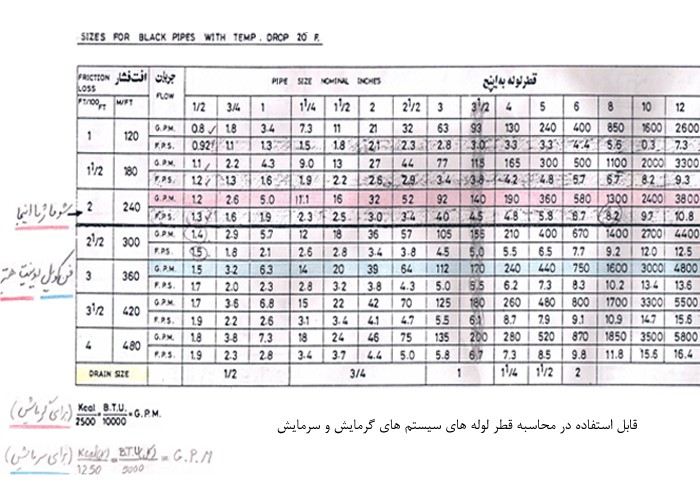 SIZES FOR BLACK PIPES WITH TEMP. DROP 20 F.
FRICTION LOSS افت فشار جریان PIPE SIZE NOMINAL INCHES قطر لوله به اینچ
FT/100 FT M/FT FLOW 1/2 3/4 1 1 1/4 1 1/2 2 2 1/2 3 3 1/2 4 5 6 8 10 12
1 120 G.P.M. 0.8 1.8 3.4 7.3 11 21 32 63 93 130 240 400 850 1600 2600
F.P.S. 0.92 1.1 1.3 1.5 1.8 2.1 2.3 2.8 3.0 3.3 3.3 4.4 5.6 0.3 7.3
1 1/2 180 G.P.M. 1.1 2.2 4.3 9.0 13 27 44 77 115 165 300 500 1100 2000 3300
F.P.S. 1.2 1.3 1.6 1.9 2.2 2.6 2.9 3.4 3.8 4.2 4.8 5.7 6.7 8.2 9.3
2 240 G.P.M. 1.2 2.6 5.0 17.1 16 32 52 92 140 190 360 580 1300 2400 3800
F.P.S. 1.3 1.6 1.9 2.3 2.5 3.0 3.4 4.0 4.5 4.8 5.8 6.7 8.2 9.7 10.8
2 1/2 300 G.P.M. 1.4 2.9 5.7 12 18 36 57 105 155 210 400 670 1400 2700 4400
F.P.S. 1.5 1.8 2.1 2.6 2.8 3.4 3.8 4.5 5.0 5.5 6.5 7.7 9.2 12.0 12.5
3 360 G.P.M. 1.5 3.2 6.3 14 20 39 64 112 170 240 440 750 1600 3000 4800
F.P.S. 1.7 2.0 2.3 2.8 3.2 3.8 4.3 5.0 5.5 6.2 7.3 8.3 10.2 13.4 13.6
3 1/2 420 G.P.M. 1.7 3.6 6.8 15 22 42 70 125 180 260 480 800 1700 3300 5500
F.P.S. 1.9 2.2 2.6 3.1 3.4 4.1 4.7 5.5 6.1 8.7 7.9 9.1 10.9 14.7 15.6
4 480 G.P.M. 1.8 3.8 7.3 18 24 46 75 135 200 280 520 870 1850 3500 5800
F.P.S. 1.9 2.3 2.8 3.4 3.7 4.4 5.0 5.8 6.7 7.3 8.5 9.8 11.8 15.6 16.4
DRAIN SIZE 1/2 3/4 1 1 1/4 1 1/2 2
(برای گرمایش) Kcal/2500 = B.T.U./10000 = G.P.M.
قابل استفاده در محاسبه قطر لوله های سیستم های گرمایش و سرمایش
(برای سرمایش) Kcal/1250 = B.T.U./5000 = G.P.M